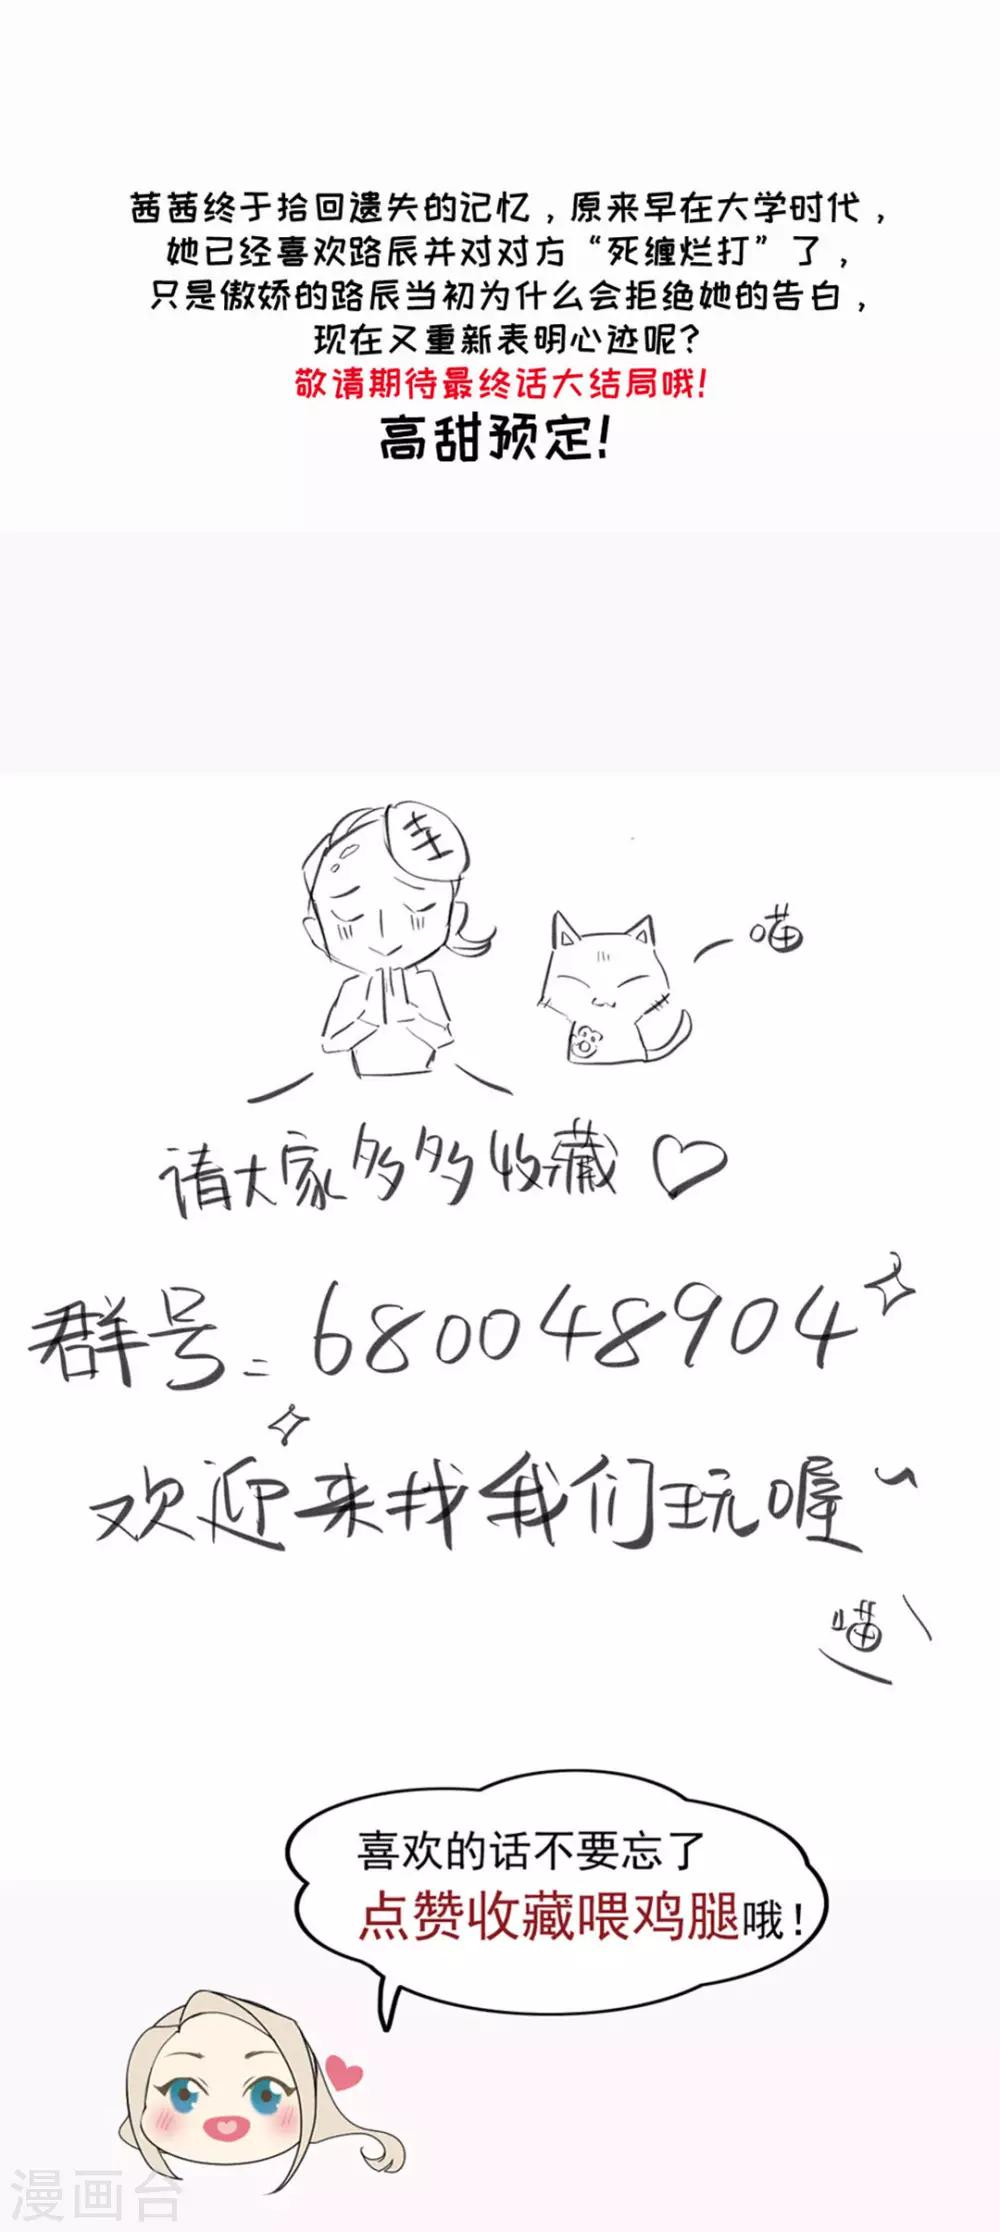 茜茜终于拾回遗失的记忆，原来早在大学时代，
她已经喜欢路辰并对对方“死缠烂打”了，
只是傲娇的路辰当初为什么会拒绝她的告白，
现在又重新表明心迹呢？
敬请期待最终话大结局哦！
高甜预定！
喵
请大家多多收藏♡
群号：680048904
欢迎来找我们玩喔~
喵
喜欢的话不要忘了
点赞收藏喂鸡腿哦！
漫画台